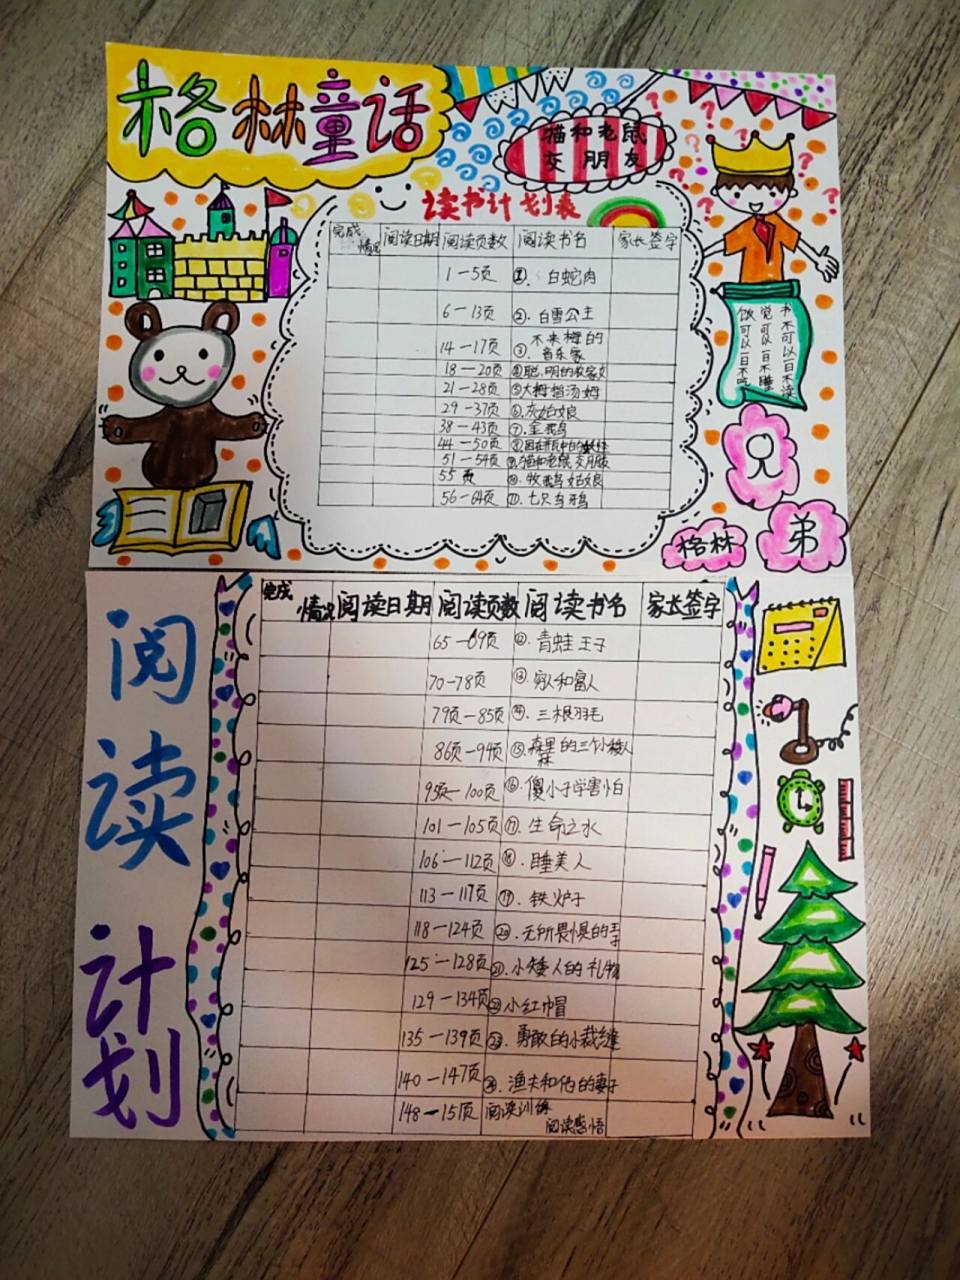 格林童话
猫和老鼠
交朋友
读书计划表
完成情况 阅读日期 阅读页数 阅读书名 家长签字
1—5页 ①. 白蛇肉
6—13页 ②. 白雪公主
14—17页 ③. 不来梅的音乐家
18—20页 ④聪.明的农家女
21—28页 ⑤大拇指汤姆
29—37页 ⑥.灰姑娘
38—43页 ⑦.金鹅鸟
44—50页 ⑧困在瓶中的妖怪
51—54页 ⑨.猫和老鼠交朋友
55页 ⑩.牧鹅姑娘
56—64页 ⑪.七只乌鸦
书不可以一日不读
觉可以一日不睡
饭可以一日不吃
兄
弟
格林
阅读计划
完成情况 阅读日期 阅读页数 阅读书名 家长签字
65—69页 ⑫.青蛙王子
70—78页 ⑬.穷人和富人
79页—85页 ⑭.三根羽毛
86页—94页 ⑮.森林里的三个小矮人
95页—100页 ⑯.傻小子学害怕
101—105页 ⑰.生命之水
106—112页 ⑱.睡美人
113—117页 ⑲.铁炉子
118—124页 ⑳.无所畏惧的王子
125—128页 ㉑.小矮人的礼物
129—134页 ㉒小红帽
135—139页 ㉓.勇敢的小裁缝
140—147页 ㉔.渔夫和他的妻子
148—15页 阅读训练
阅读感悟